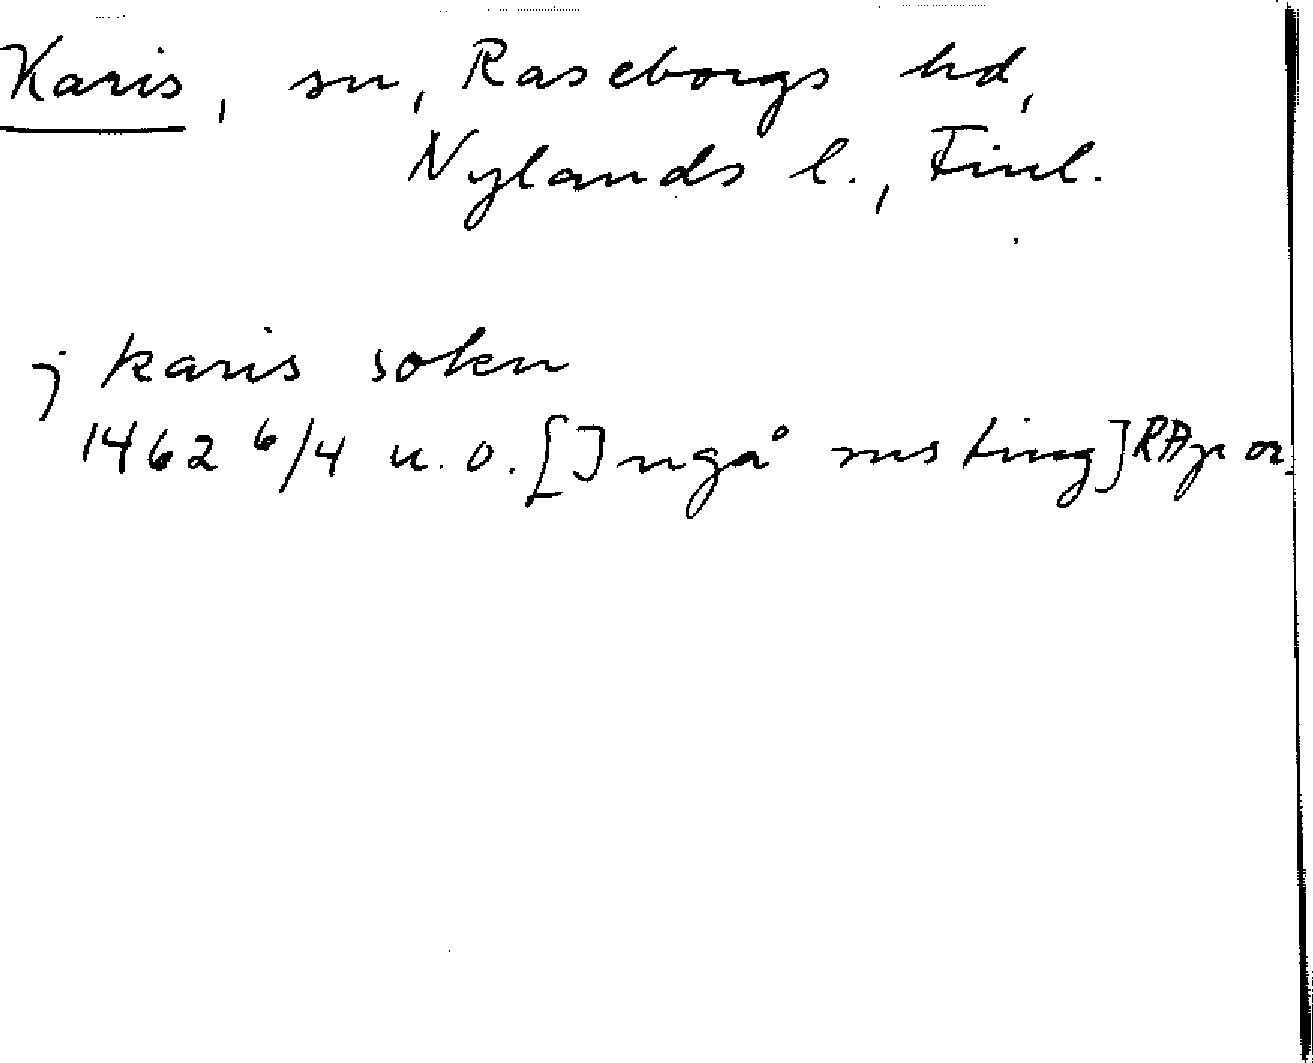 Karis, sn, Raseborgs hd,
Nylands l., Finl.
j karis sokn
1462 6/4 u.o. [Ingå sns ting] RAp or.